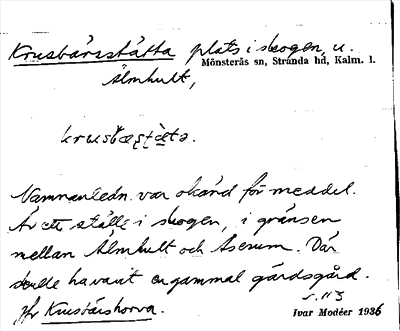 Krusbärsstätta plats i skogen, u.
Mönsterås sn, Stranda hd, Kalm. l.
Älmhult,
Namnanledn. var okänd för meddel.
Är ett ställe i skogen, i gränsen
mellan Älmhult och Aserum. Där
skulle ha varit en gammal gärdsgård.
s. 113
Jfr Krusbärshorva.
Ivar Modéer 1936